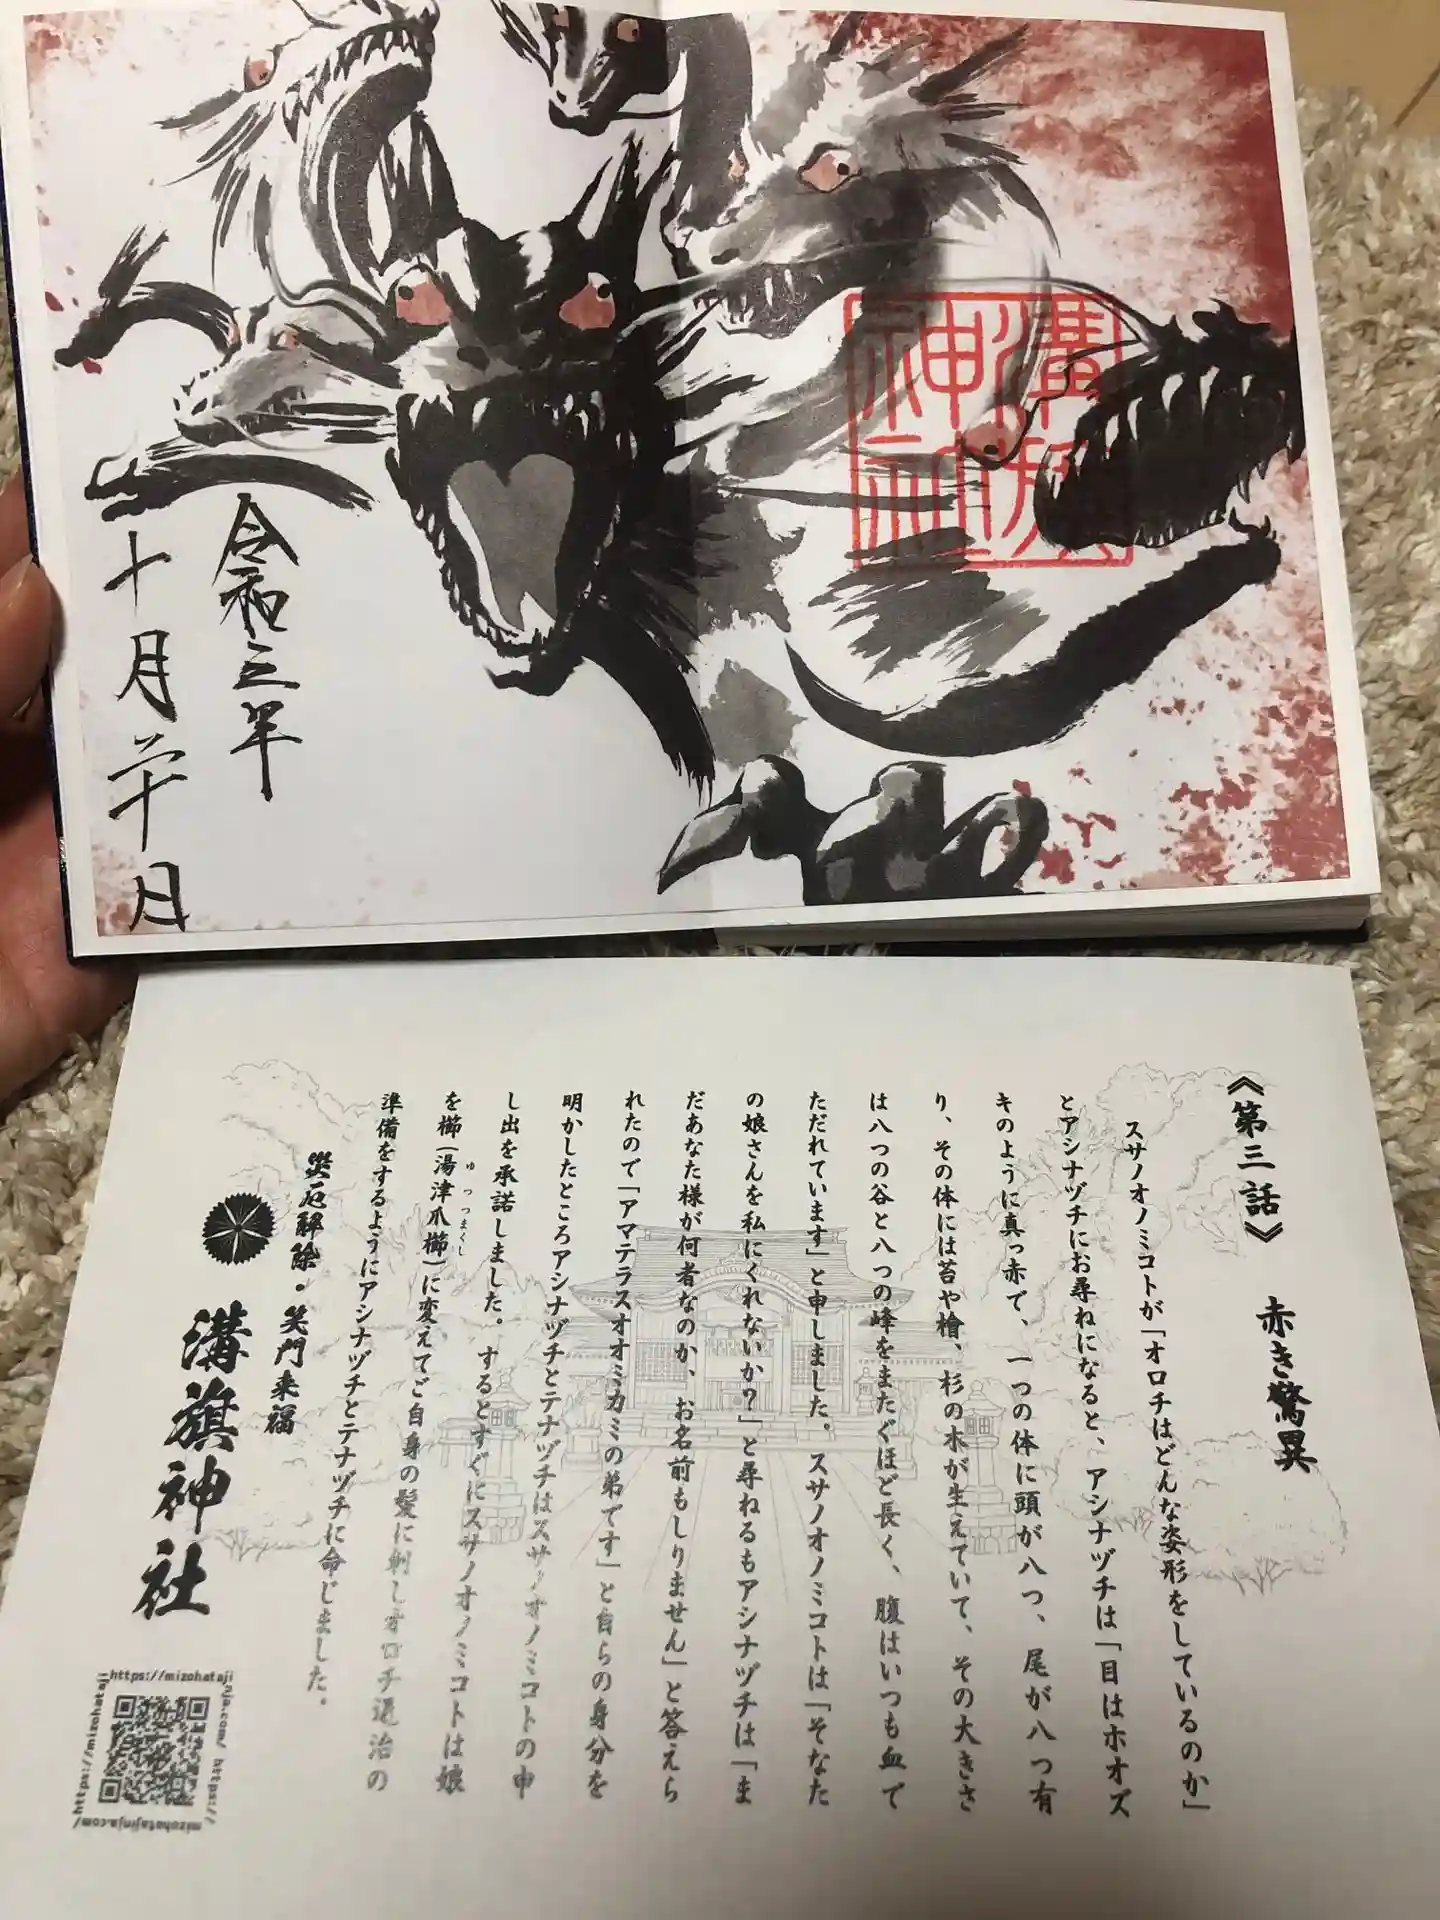 令和三年
十月二十日
溝旗
神社
《第三話》 赤き驚異
スサノオノミコトが「オロチはどんな姿形をしているのか」
とアシナヅチにお尋ねになると、アシナヅチは「目はホオズ
キのように真っ赤で、一つの体に頭が八つ、尾が八つ有
り、その体には苔や檜、杉の木が生えていて、その大きさ
は八つの谷と八つの峰をまたぐほど長く、腹はいつも血で
ただれています」と申しました。スサノオノミコトは「そなた
の娘さんを私にくれないか?」と尋ねるもアシナヅチは「ま
だあなた様が何者なのか、お名前もしりません」と答えら
れたので「アマテラスオオミカミの弟です」と自らの身分を
明かしたところアシナヅチとテナヅチはスサノオノミコトの申
し出を承諾しました。するとすぐにスサノオノミコトは娘
を櫛(湯津爪櫛)に変えてご自身の髪に刺しオロチ退治の
ゆつつまぐし
準備をするようにアシナヅチとテナヅチに命じました。
災厄解除・笑門来福
溝旗神社
https://mizohatajinja.com/ https://mizohatajinja.com/ https://mizohataji